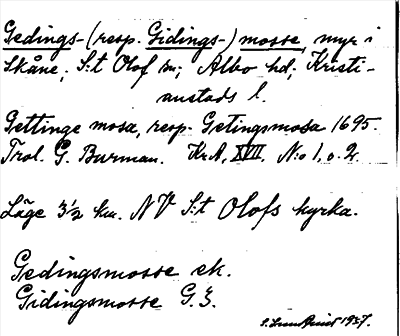 Gedings-(resp. Gidings-) mosse, myr i
Skåne; S:t Olof sn; Albo hd; Kristi-
anstads l.
Gettinge mosa, resp. Getingsmosa 1695.
Trol. G. Burman. Kr.A, XVII, N:o 1, o. 2.
Läge 3½ km. NV S:t Olofs kyrka.
Gedingsmosse ek.
Gidingsmosse G.S.
1937.